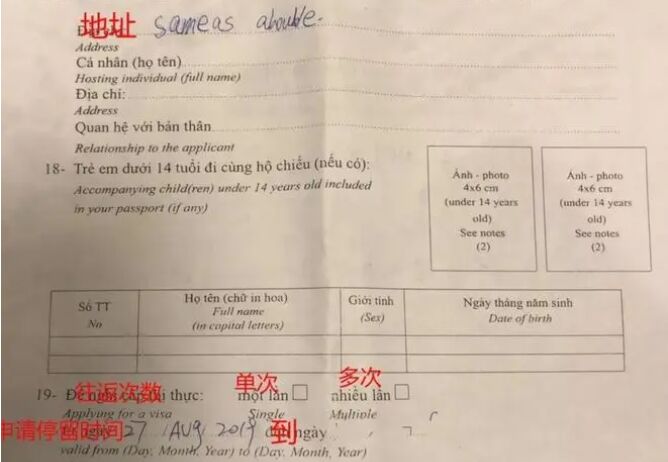 地址 same as
Address
Cá nhân (họ tên)
Hosting individual (full name)
Địa chỉ:
Address
Quan hệ với bản thân
Relationship to the applicant
18- Trẻ em dưới 14 tuổi đi cùng hộ chiếu (nếu có):
Accompanying child(ren) under 14 years old included
in your passport (if any)
Ảnh - photo
4x6 cm
(under 14 years
old)
See notes
(2)
Ảnh - photo
4x6 cm
(under 14 years
old)
See notes
(2)
Số TT
No
Họ tên (chữ in hoa)
Full name
(in capital letters)
Giới tính
(Sex)
Ngày tháng năm sinh
Date of birth
往返次数 单次 多次
19- thực: một lần nhiều lần
Applying for a visa Single Multiple
申请停留时间 27 AUG 2019 到 ngày
valid from (Day, Month, Year) to (Day, Month, Year)